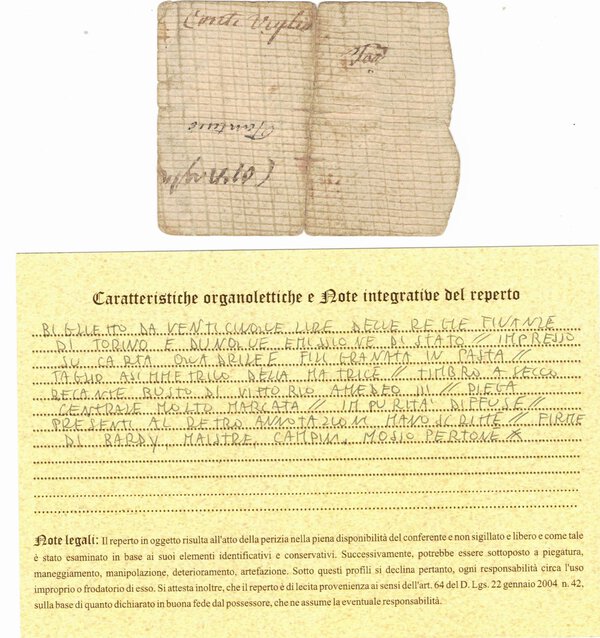 Conti
Caratteristiche organolettiche e Note integrative del reperto
BIGLIETTO DA VENTICINQUE LIRE DELLE REGIE FINANZE
DI TORINO E DUNQUE EMISSIONE DI STATO // IMPRESSO
SU CARTA QUADRILE E FILIGRANATA IN PASTA //
TAGLIO ASIMMETRICO DELLA MATRICE // TIMBRO A SECCO
RECANTE BUSTO DI VITTORIO AMEDEO III // PIEGA
CENTRALE MOLTO MARCATA // IMPURITÀ DIFFUSE //
PRESENTI AL RETRO ANNOTAZIONI MANOSCRITTE // FIRME
DI BARDY, MAISTRE, CAMPINI, MOSSO PERTONE *
Note legali: Il reperto in oggetto risulta all'atto della perizia nella piena disponibilità del conferente e non sigillato e libero e come tale
è stato esaminato in base ai suoi elementi identificativi e conservativi. Successivamente, potrebbe essere sottoposto a piegatura,
maneggiamento, manipolazione, deterioramento, artefazione. Sotto questi profili si declina pertanto, ogni responsabilità circa l'uso
improprio o frodatorio di esso. Si attesta inoltre, che il reperto è di lecita provenienza ai sensi dell'art. 64 del D. Lgs. 22 gennaio 2004 n. 42,
sulla base di quanto dichiarato in buona fede dal possessore, che ne assume la eventuale responsabilità.